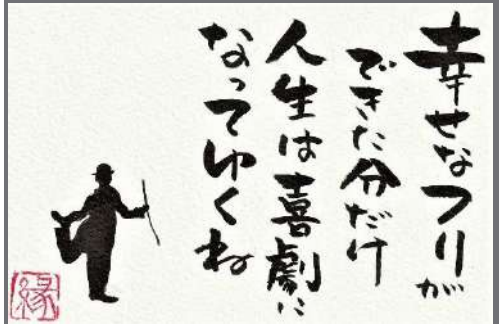 幸せなフリが
できた分だけ
人生は喜劇に
なってゆくね
縁